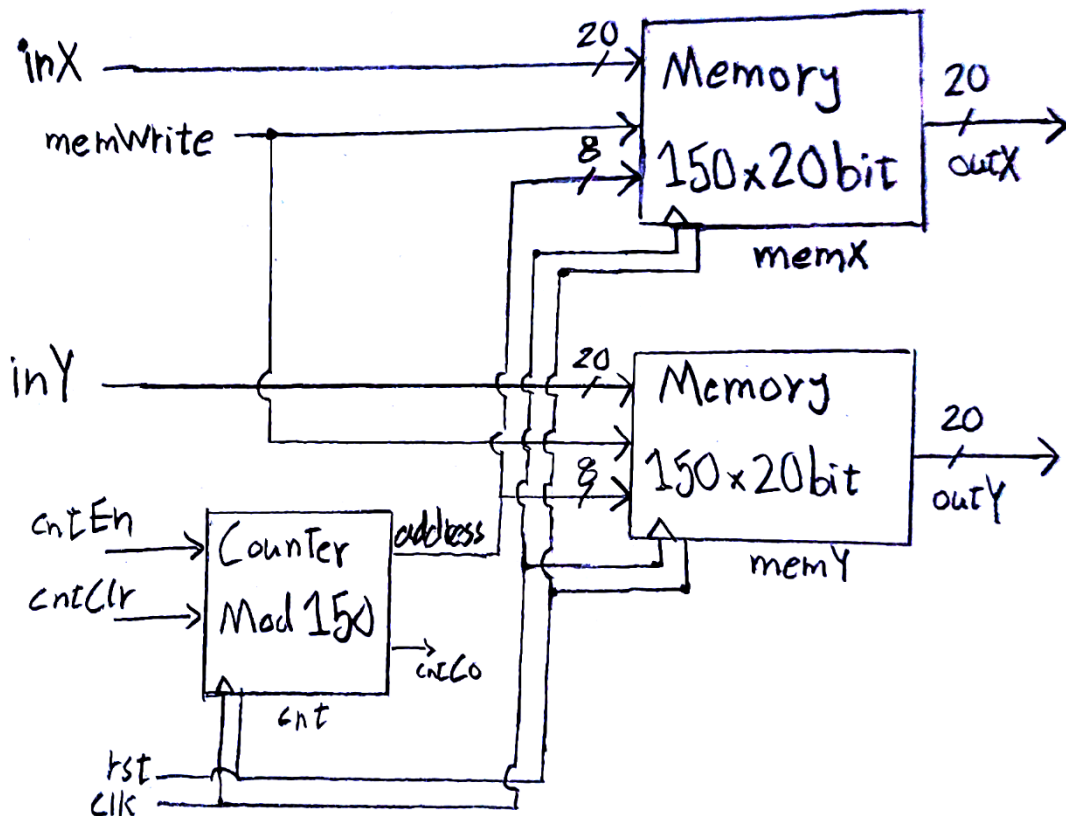 inX
20
Memory
150x20bit
20
outX
memWrite
8
memX
inY
20
Memory
150x20bit
20
outY
8
memY
cntEn
cntClr
Counter
Mod 150
address
cntCo
cnt
rst
clk